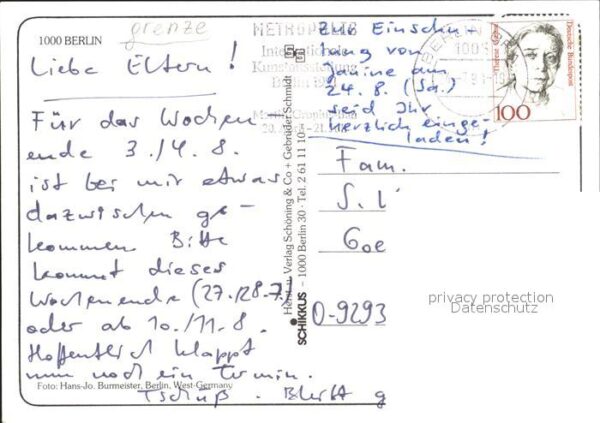 grenze
1000 BERLIN
Liebe Eltern!
Für das Wochen-
ende 3./4. 8.
ist bei mir etwas
dazwischen ge-
kommen Bitte
kommt dieses
Wochenende (27./28.7.)
oder ab 10./11.8.
Hoffentlich klappt
nun noch ein Termin.
Tschüß.
Foto: Hans-Jo. Burmeister, Berlin, West-Germany
METROPOLIS
Internationale
Kunstausstellung
Berlin
Zur Einschu-
lung von
Janine am
24.8. (Sa.)
seid Ihr
herzlich einge-
laden!
BERLIN
Deutsche Bundespost
100
Herst. u. Verlag Schöning & Co + Gebrüder Schmidt
SCHIKKUS – 1000 Berlin 30 · Tel. 2 61 11 10
Fam.
O-9293
privacy protection
Datenschutz